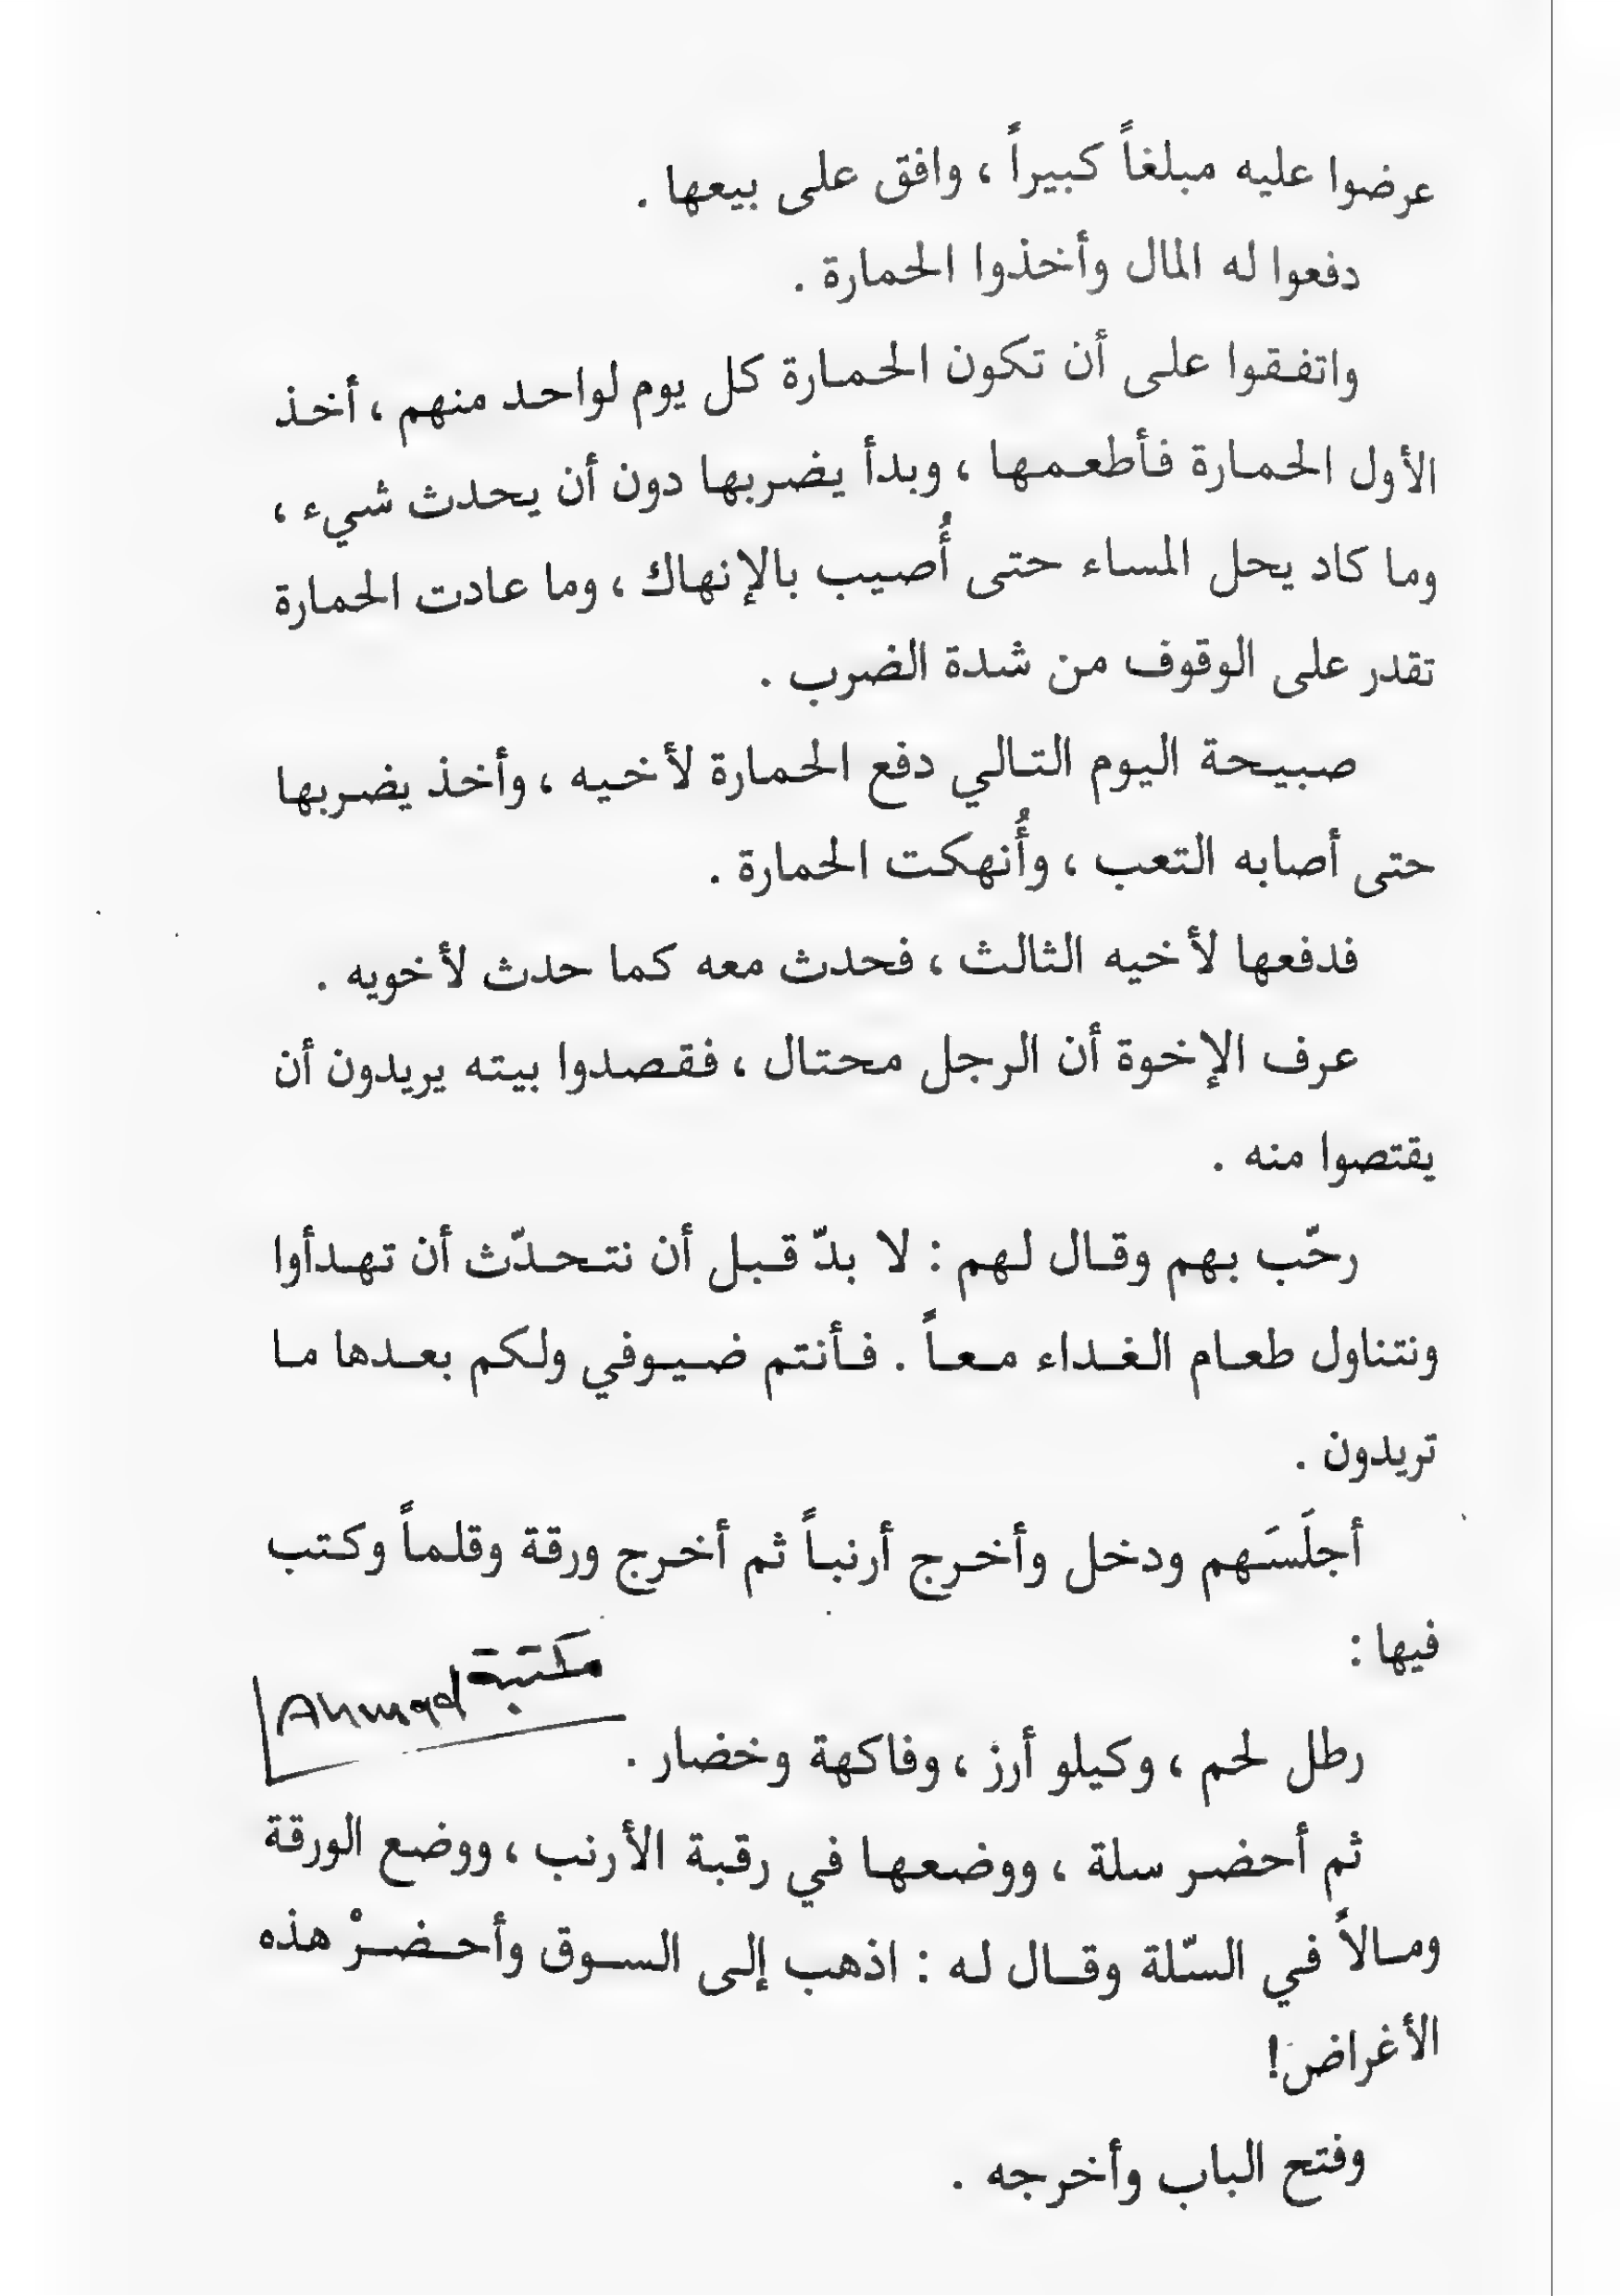 عرضوا عليه مبلغاً كبيراً ، وافق على بيعها .
دفعوا له المال وأخذوا الحمارة .
واتفقوا على أن تكون الحمارة كل يوم لواحد منهم ، أخذ
الأول الحمارة فأطعمها ، وبدأ يضربها دون أن يحدث شيء ،
وما كاد يحل المساء حتى أُصيب بالإنهاك ، وما عادت الحمارة
تقدر على الوقوف من شدة الضرب .
صبيحة اليوم التالي دفع الحمارة لأخيه ، وأخذ يضربها
حتى أصابه التعب ، وأُنهكت الحمارة .
فدفعها لأخيه الثالث ، فحدث معه كما حدث لأخويه .
عرف الإخوة أن الرجل محتال ، فقصدوا بيته يريدون أن
يقتصوا منه .
رحّب بهم وقال لهم : لا بدّ قبل أن نتحدّث أن تهدأوا
ونتناول طعام الغداء معاً . فأنتم ضيوفي ولكم بعدها ما
تريدون .
أجلَسَهم ودخل وأخرج أرنباً ثم أخرج ورقة وقلماً وكتب
فيها :
مكتبة Ahmad
رطل لحم ، وكيلو أرز ، وفاكهة وخضار .
ثم أحضر سلة ، ووضعها في رقبة الأرنب ، ووضع الورقة
ومالاً في السّلة وقال له : اذهب إلى السوق وأحضرْ هذه
الأغراض!
وفتح الباب وأخرجه .